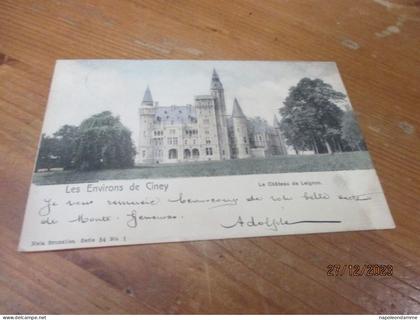 Les Environs de Ciney
Le Château de Leignon.
Je vous remercie beaucoup de votre belle carte
de Monte
Adolphe
Nels Bruxelles. Serie 34 No 1
27/12/2023
www.napoleondamme.com